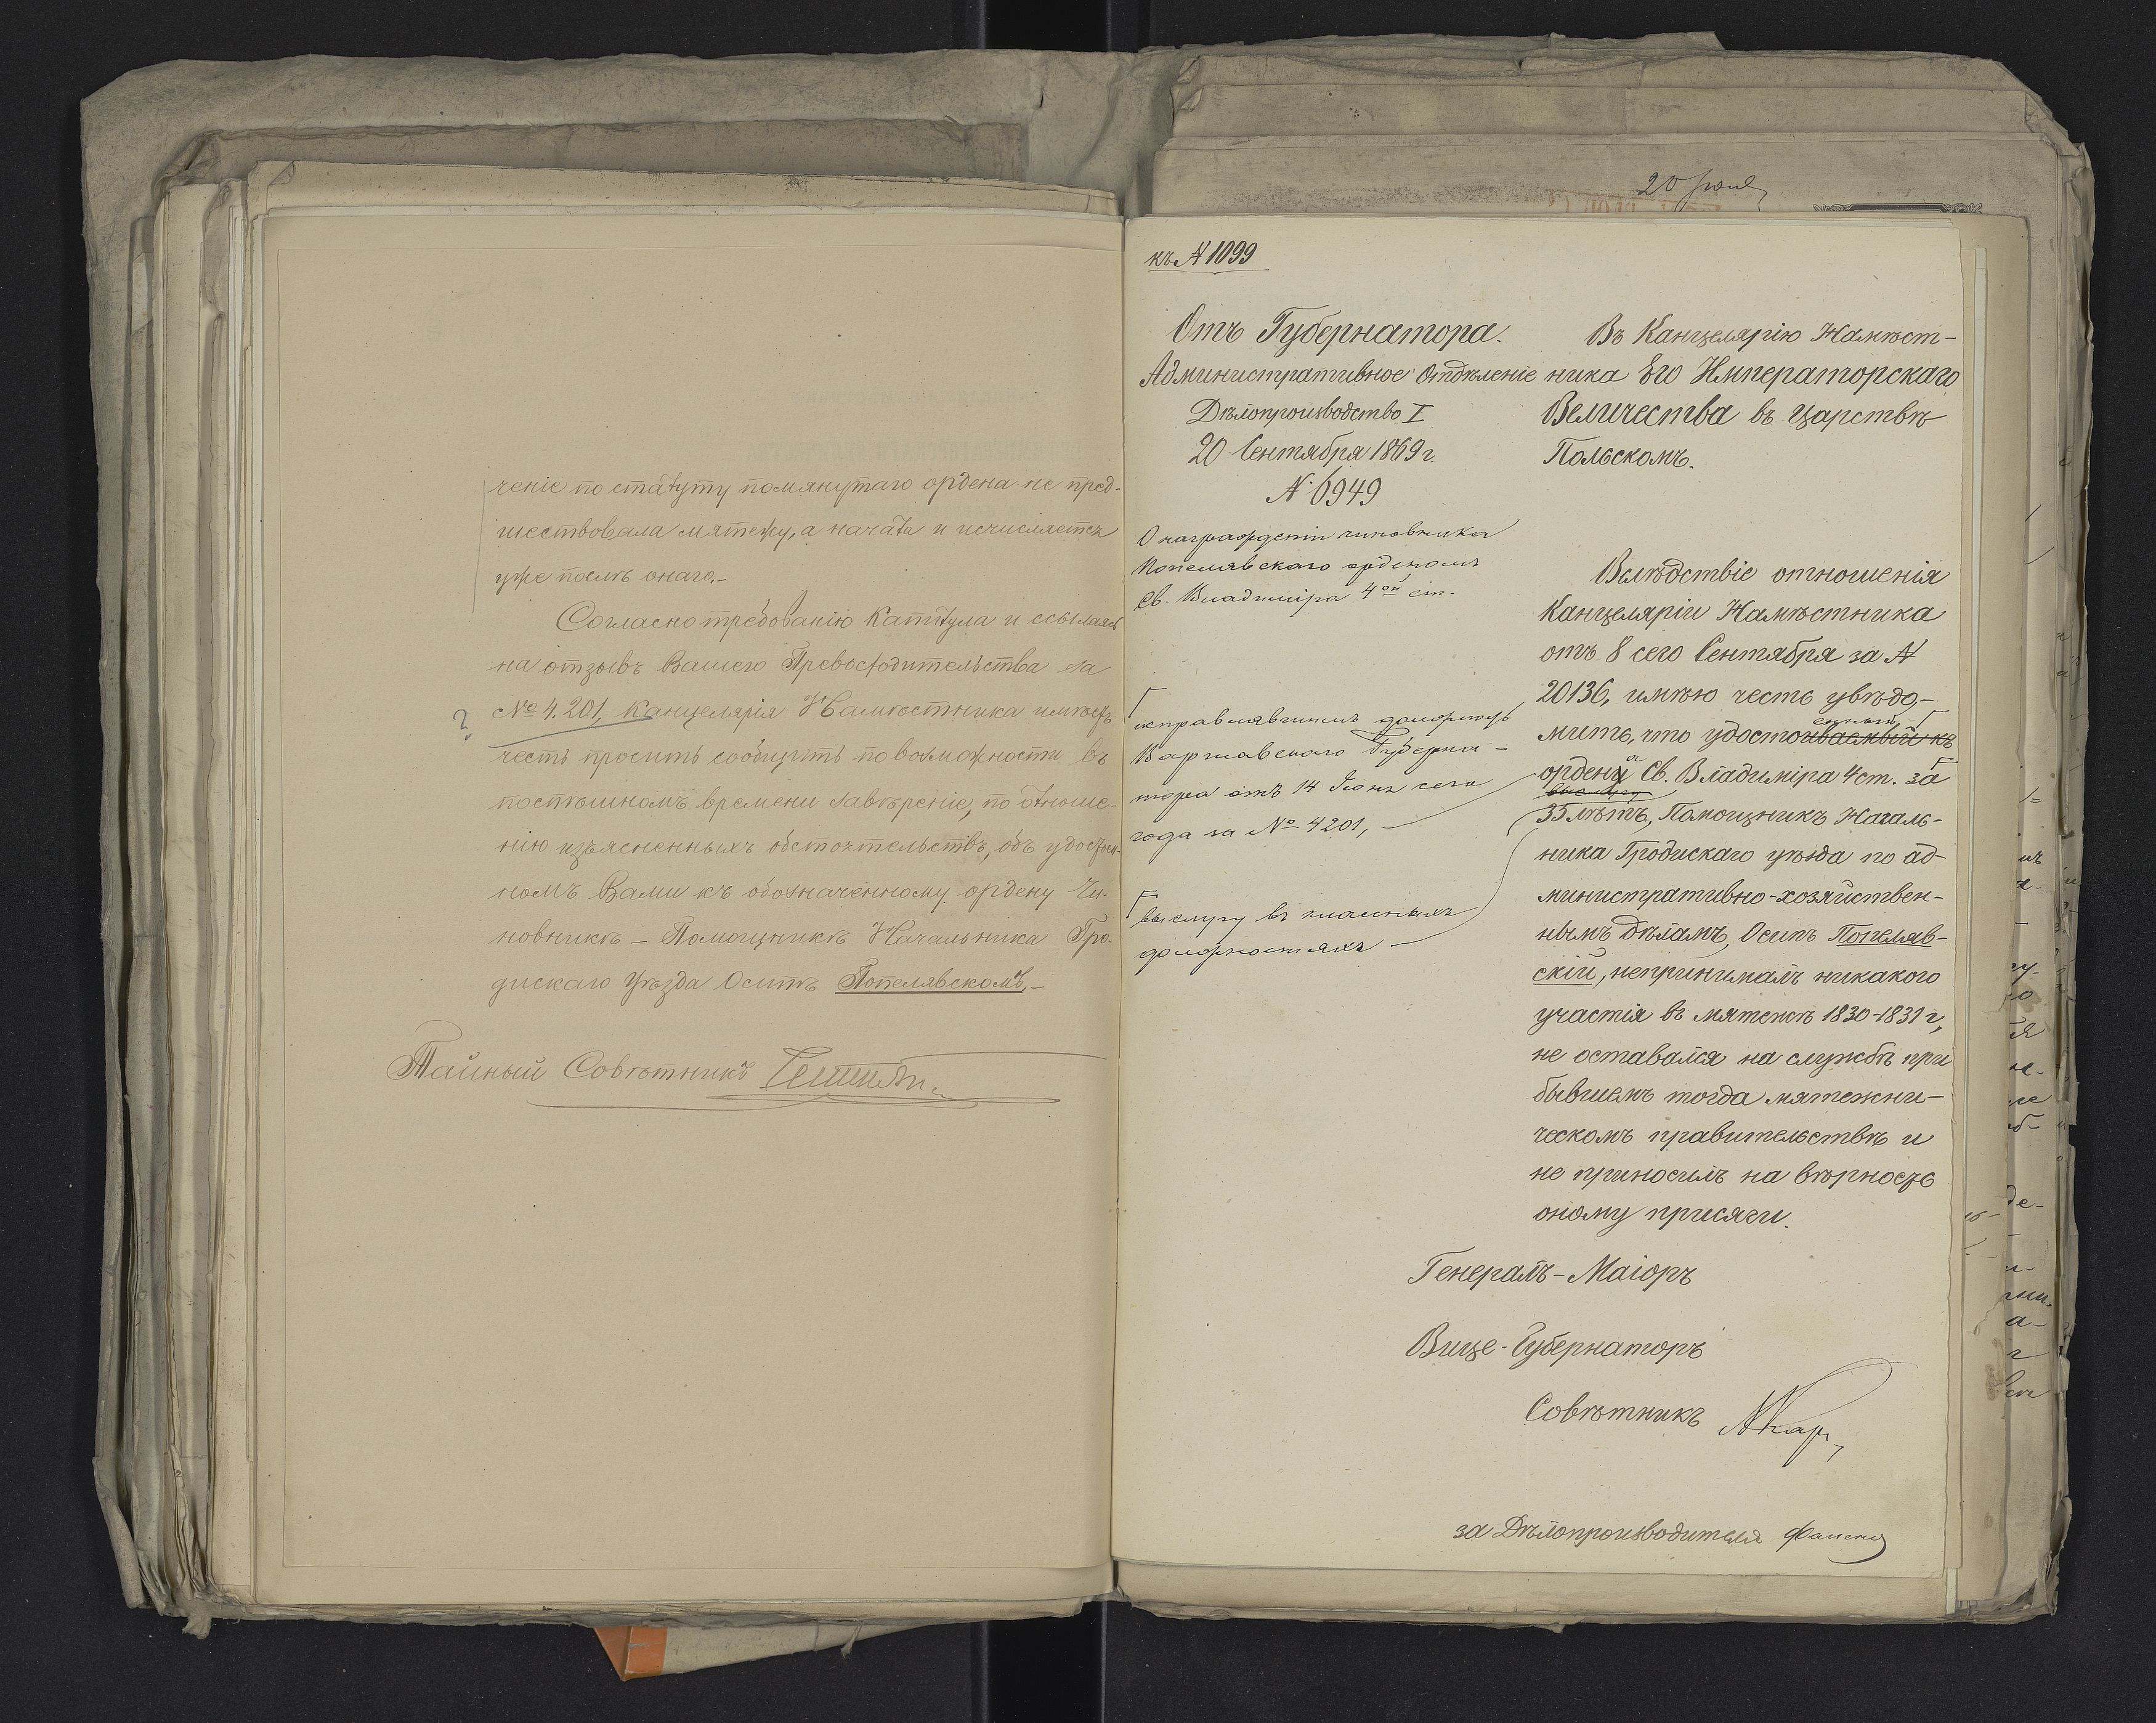 ченіе по статуту помянутаго ордена не пред-
шествовала мятежу, а начата и исчисляется
уже послѣ онаго.-
Согласно требованію Капитула и ссылаясь
на отзывъ Вашего Превосходительства за
№ 4.201, Канцелярія Намѣстника имѣетъ
?
честь просить сообщить по возможности въ
поспѣшномъ времени завѣреніе, по отноше-
нію изъясненныхъ обстоятельствъ, объ удостоен-
номъ Вами къ обозначенному ордену Чи-
новникѣ – Помощникѣ Начальника Гро-
дискаго Уѣзда Осипѣ Попелявскомъ.-
Тайный Совѣтникъ
20
къ N 1099
Отъ Губернатора.
Административное Отдѣленіе
Дѣлопроизводство I
20 Сентября 1869 г.
N. 6949
О награжденіи чиновника
Попелявскаго орденомъ
Св. Владиміра 4ой ст.
исправлявшимъ должность
Варшавскаго Губерна-
тора отъ 14 Іюня сего
года за № 4201,
выслугу въ классныхъ
должностяхъ
Въ Канцелярію Намѣст-
ника Его Императорскаго
Величества въ Царствѣ
Польскомъ.
Вслѣдствіе отношенія
Канцеляріи Намѣстника
отъ 8 сего Сентября за N
20136, имѣю честь увѣдо-
мить, что удостоиваемый къ
енный
ордену Св. Владиміра 4 ст. за
выслугу
35 лѣтъ, Помощникъ Началь-
ника Гродискаго уѣзда по ад-
министративно-хозяйствен-
нымъ дѣламъ, Осипъ Попеляв-
скій, непринималъ никакого
участія въ мятежѣ 1830-1831 г.,
не оставался на службѣ при
бывшемъ тогда мятежни-
ческомъ правительствѣ и
не приносилъ на вѣрность
оному присяги.
Генералъ-Маіоръ
Вице-Губернаторъ
Совѣтникъ
за Дѣлопроизводителя